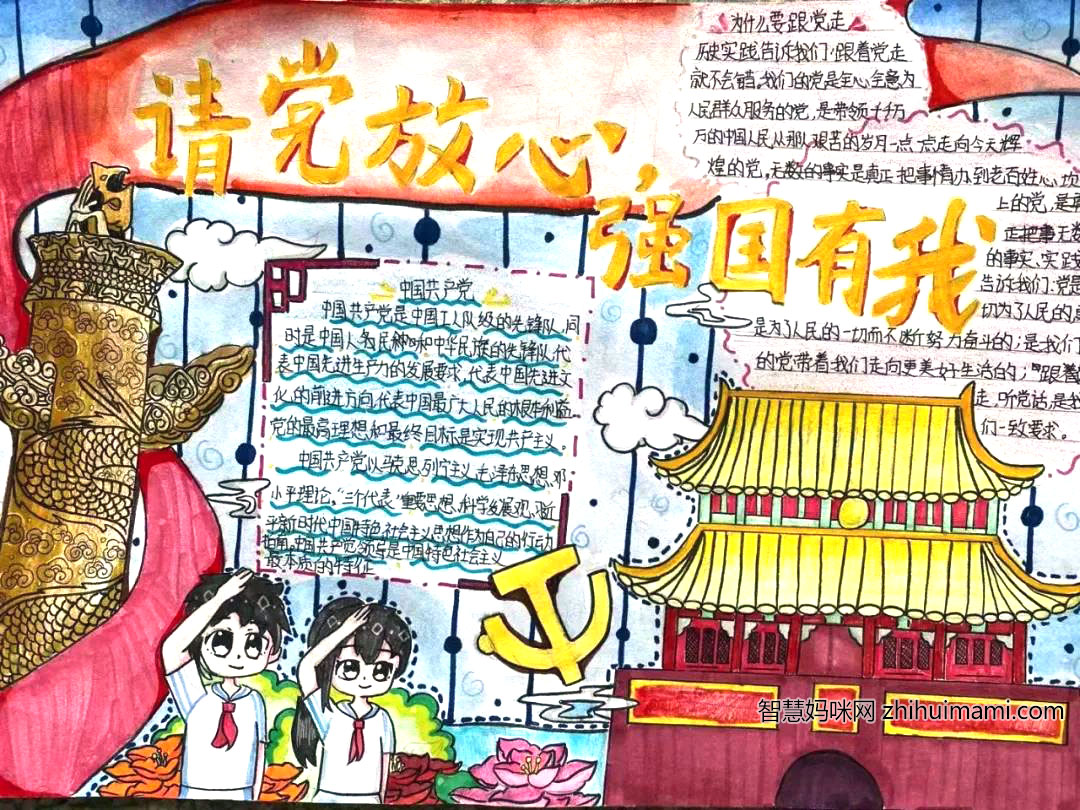 请党放心，
强国有我
为什么要跟党走
历史实践告诉我们:跟着党走
就不会错。我们的党是全心全意为
人民群众服务的党，是带领千千万
万的中国人民从那艰苦的岁月一点一点走向今天辉
煌的党，无数的事实是真正把事情办到老百姓心坎
上的党，是真
正把事无数
的事实、实践
告诉我们:党是
切为了人民的
是为了人民的一切而不断努力奋斗的;是我们
的党带着我们走向更美好生活的;"跟着
走、听党话,是我
们一致要求。
中国共产党
中国共产党是中国工人队级的先锋队,同
时是中国人民和中华民族的先锋队,代
表中国先进生产力的发展要求,代表中国先进文
化的前进方向,代表中国最广大人民的根本利益
党的最高理想和最终目标是实现共产主义。
中国共产党以马克思列宁主义、毛泽东思想、邓
小平理论、"三个代表"重要思想、科学发展观、习近
平新时代中国特色社会主义思想作为自己的行动
指南。中国共产党领导是中国特色社会主义
最本质的特征
智慧妈咪网 zhihuimami.com